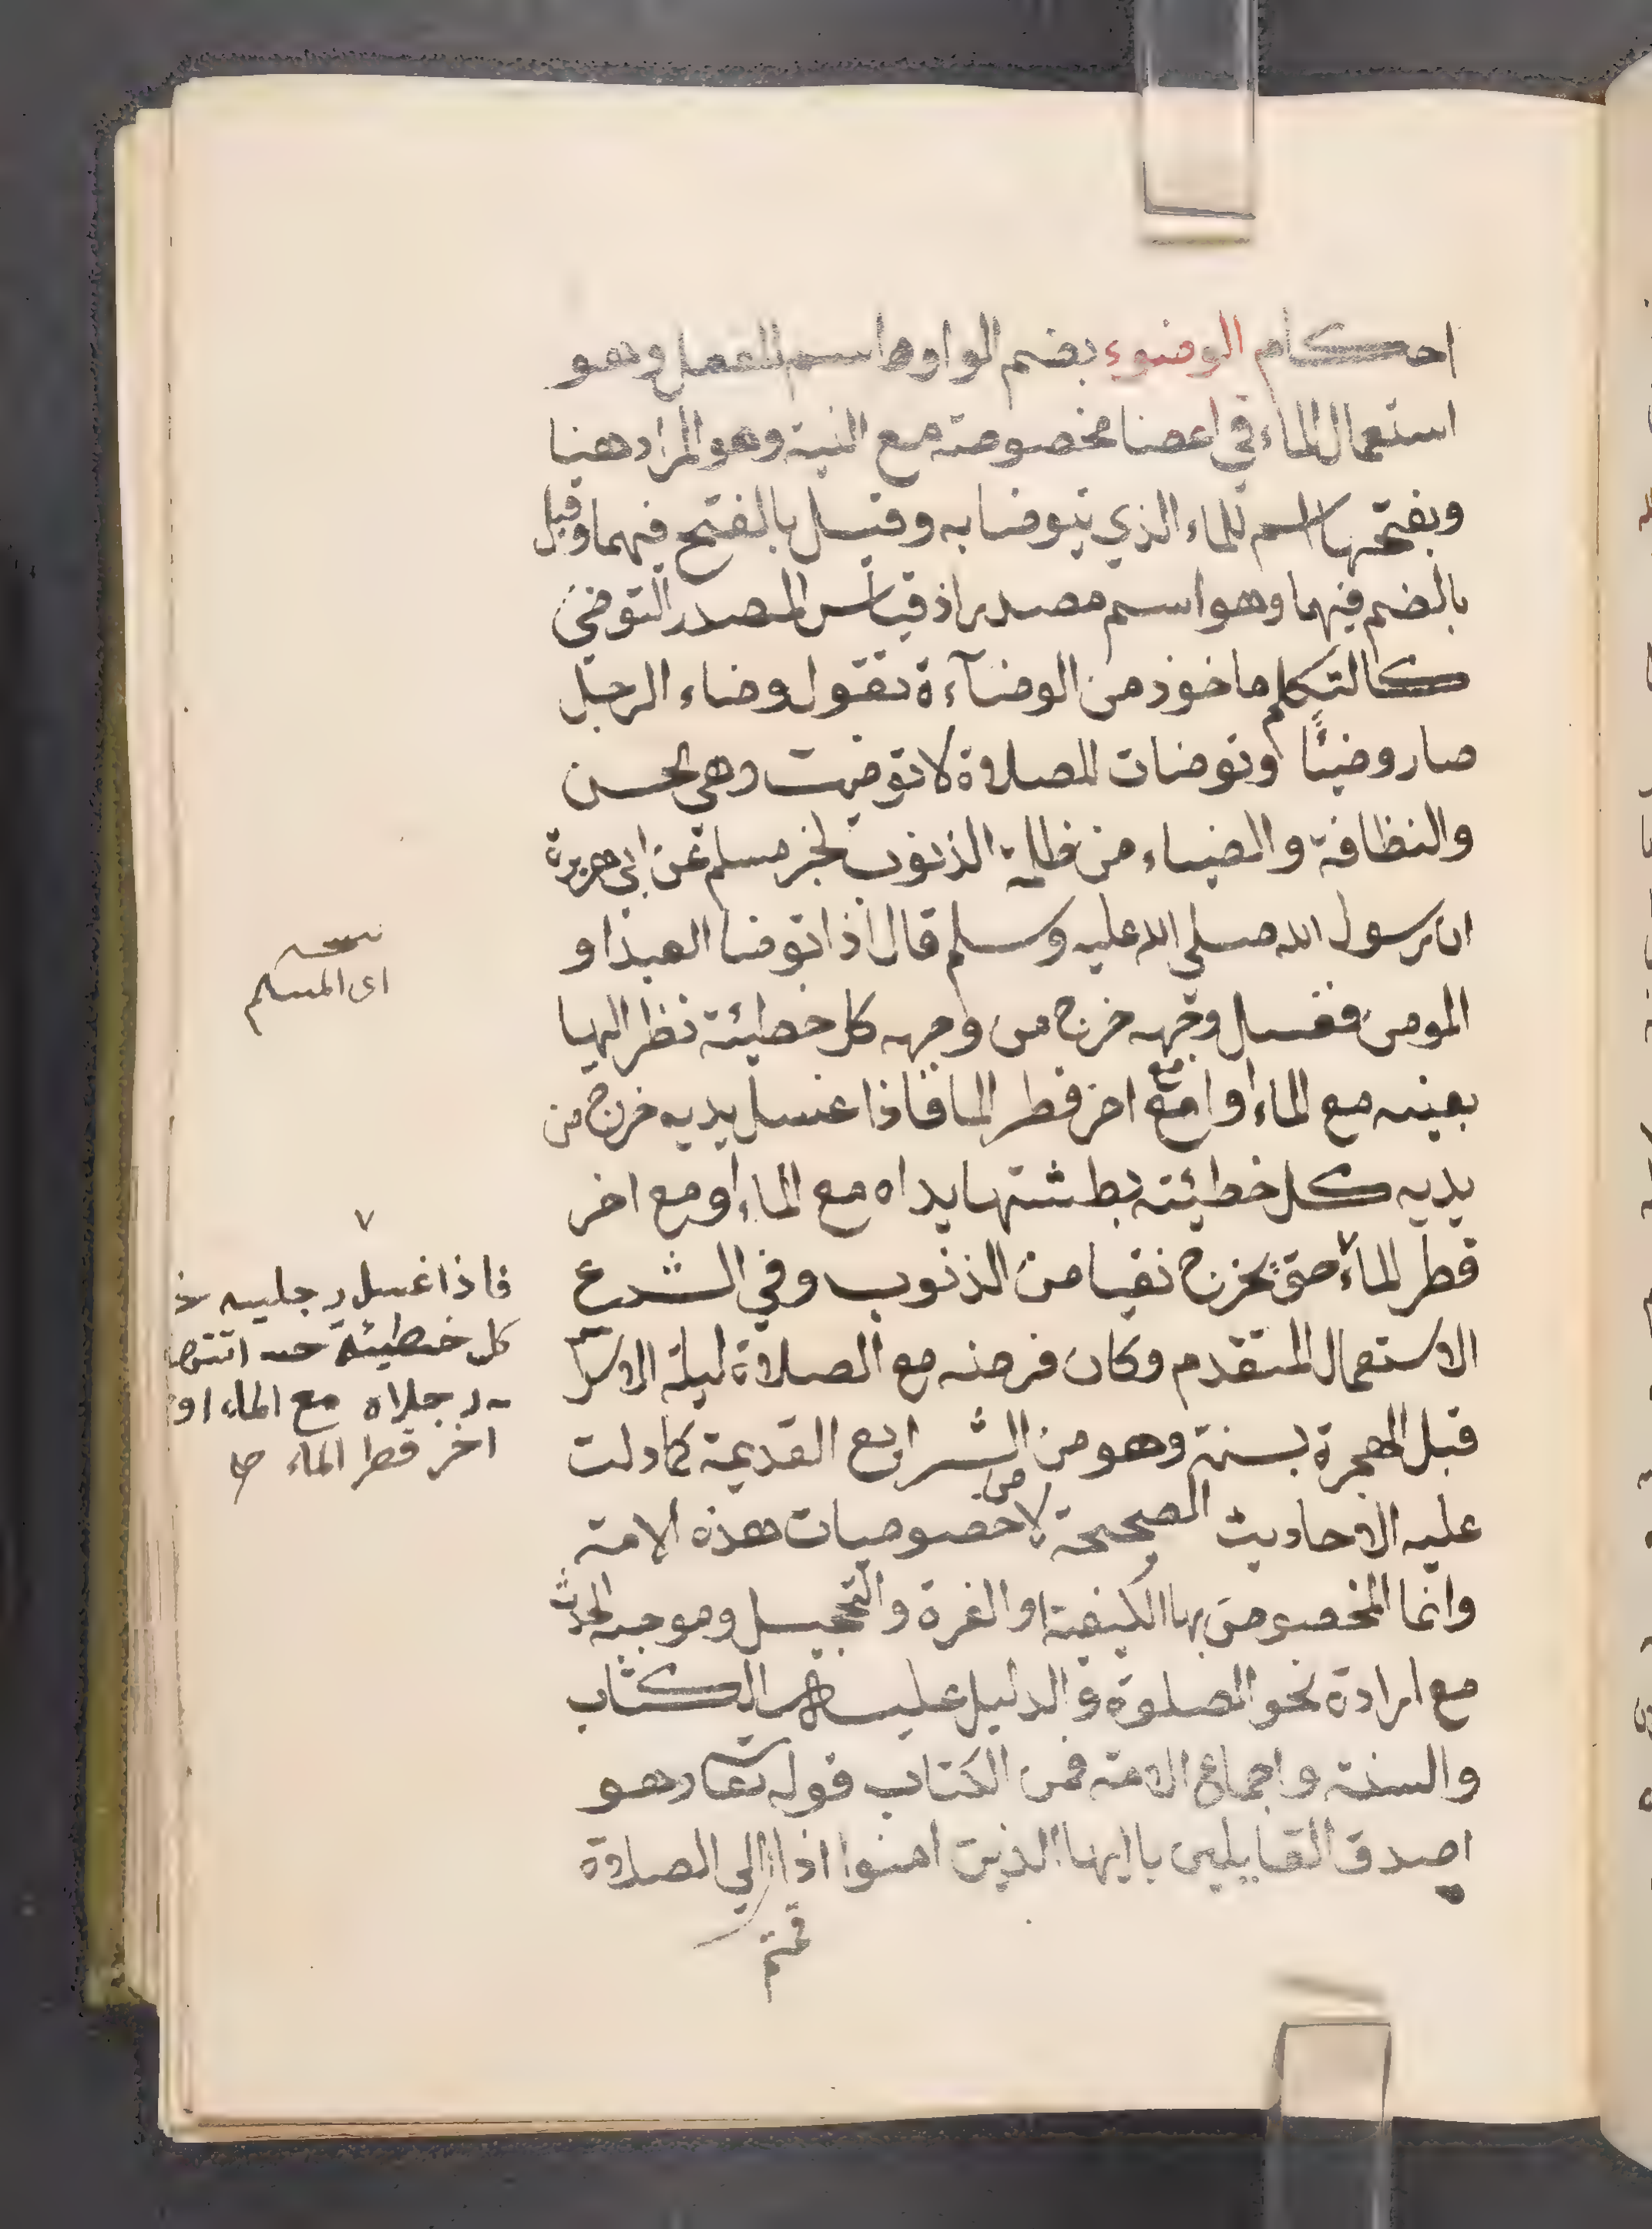 احكام الوضوء بضم الواو وهو اسم للفعل وهو
استعمال الماء في اعضا مخصوصة مع النية وهو المراد هنا
وبفتحها اسم للماء الذي يتوضا به وقيل بالفتح فيهما وقيل
بالضم فيهما وهو اسم مصدر اذ قياس المصدر التوضئ
كالتكلم ماخوذ من الوضآءة تقول وضاء الرجل
صار وضيئًا وتوضات للصلاة لا توضيت وهي الحسن
والنظافة والضياء من ظلمة الذنوب لخبر مسلم عن ابي هريرة
ان رسول الله صلى الله عليه وسلم قال اذا توضا العبد او
المومن فغسل وجهه خرج من وجهه كل خطيئة نظر اليها
بعينه مع الماء او مع اخر قطر الما فاذا غسل يديه خرج من
يديه كل خطيئة بطشتها يداه مع الماء او مع اخر
قطر الماء حتى يخرج نقيا من الذنوب وفي الشرع
الاستعمال المتقدم وكان فرضه مع الصلاة ليلة الاسرا
قبل الهجرة بسنة وهو من الشرايع القديمة كما دلت
عليه الاحاديث الصحيحة لا من خصوصيات هذه الامة
وانما المخصوص بها الكيفية او الغرة والتحجيل وموجبه الحدث
مع ارادة نحو الصلوة والدليل عليه الكتاب
والسنة واجماع الامة فمن الكتاب قوله تعا وهو
اصدق القايلين يا ايها الذين امنوا اذا الي الصلاة
قمتم
اى المسلم
٧
فاذا غسل رجليه خ
كل خطيئة
رجلاه مع الماء او
اخر قطر الماء